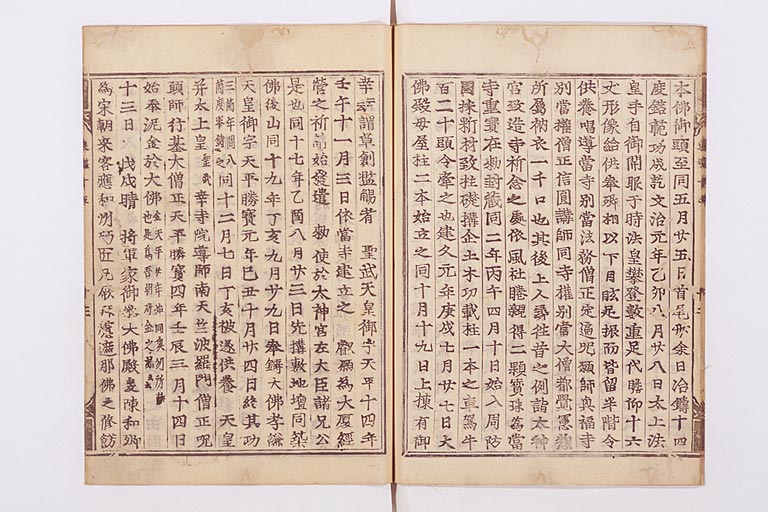 本佛御頭至同五月廿五日首尾卅余日冶鑄十四
度鎔範功成訖文治元年乙卯八月廿八日太上法
皇手自御開眼于時法皇攀登數重足代瞻仰十六
丈形像給供奉卿相以下目眩足振而皆留半階令
供養唱導當寺別當法務僧正定遍呪願師興福寺
別當權僧正信圓講師同寺權別當大僧都覺憲惣
所屬衲衣一千口也其後上人尋往昔之例詣太神
宮致造寺祈念之處依風社睠親得二顆寳珠爲當
寺重寳在勅封藏同二年丙午四月十日始入周防
國抹新材致柱礎搆企土木功載柱一本之車駕牛
百二十頭令牽之也建久元年庚戌七月廿七日大
佛殿母屋柱二本始立之同十月十九日上棟有御
幸謂草創濫觴者 聖武天皇御宇天平十四年
壬午十一月三日依當寺建立之 叡願爲大厦經
營之祈請始發遣 勅使於太神官左大臣諸兄公
是也同十七年乙酉八月廿三日先搆敷地壇同築
佛後山同十九年丁亥九月廿九日奉鑄大佛孝謙
天皇御宇天平勝寳元年己丑十月廿四日終其功
三箇年間八
箇度奉鑄之 同十二月七日丁亥被遂供養 天皇
并太上皇 聖武 幸寺院導師南天竺波羅門僧正呪
願師行基大僧正天平勝寳四年壬辰三月十四日
始奉泥金於大佛
十三日 戊戌晴 將軍家御參大佛殿爰陳和卿
爲宋朝來客應和州 巨凡厥拜盧遮那佛之修餝